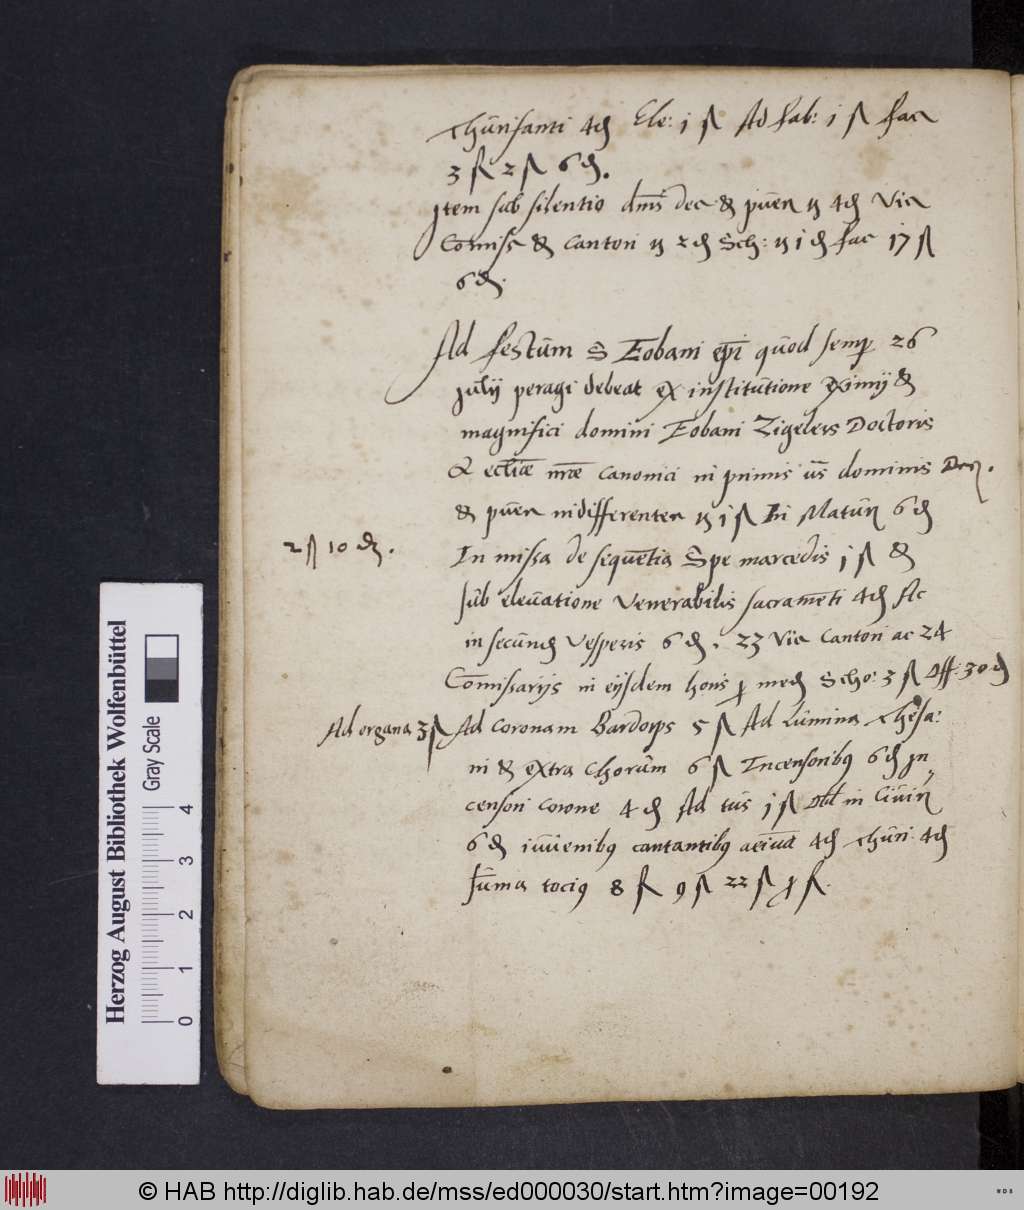 thurifanti 4₰ Ele: 1 ß Ad fab: 1 ß fac
3 fl 2 ß 6 ₰.
Item sub silentio dm̄s dec & pūer 4₰ Vic
Comiss & Cantori 2₰ Sch: 1₰ fac 17 ß
6 ₰.
Ad festūm S Eobani ep̄i qūod semp 26
julij peragi debeat ex institūtione eximij &
magnifici domini Eobani Zigelers Doctoris
& eccl̄iæ nr̄æ canonici in primis dominis Dec.
& pūer indifferenter 1 ß In Matūr 6₰
2 ß 10 ₰.
In missa de seqūentia Spe mercedis 1 ß &
sūb eleūatione Venerabilis sacramēti 4₰ Ac
in secūnd Vesperis 6 ₰. 23 Vic Cantori ac 24
Com̄issarijs in eijsdem horis p med Scho: 3 ß Off: 30₰
Ad organa 3 ß
Ad Coronam Bardorps 5 ß Ad Lūmina Thesa:
ri & extra Chorūm 6 ß Incensoribꝰ 6₰ In-
censori Corone 4 ₰ Ad tūs 1 ß in Ciūir
6 ₰ iūūenibꝰ cantantibꝰ 4₰ thūri 4₰
sūma tociꝰ 8 fl 9 ß 22 ß p fl.
Herzog August Bibliothek Wolfenbüttel
Gray Scale
0 1 2 3 4
© HAB http://diglib.hab.de/mss/ed000030/start.htm?image=00192